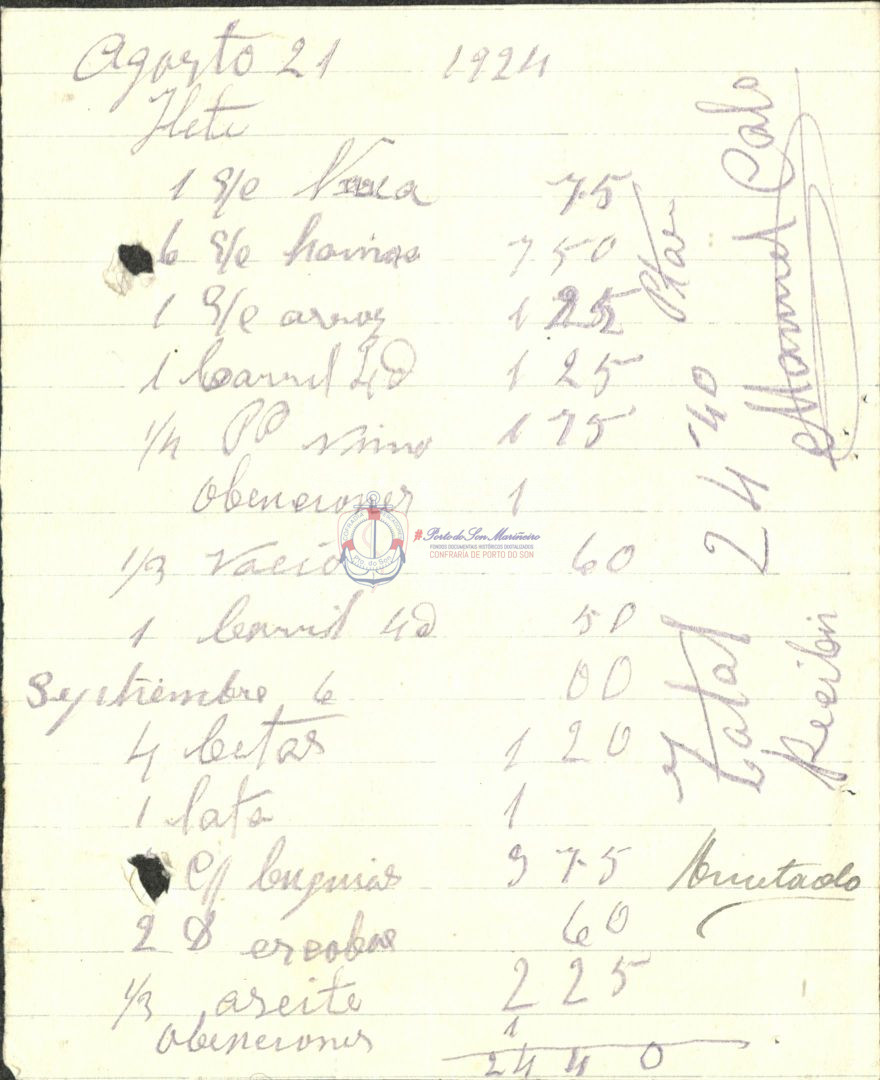 Agosto 21 1924
Flete
1 S/e 75
6 S/e harinas 7 50
1 S/e arroz 1 25
1 barril 4d 1 25
1/4 PP vino 1 75
Obenciones 1
1/3 Vacio 60
1 barril 4d 50
Septiembre 6 00
4 betas 1 20
1 lata 1
C/ bugnias 3 75
2 D escobas 60
1/3 aseite 2 25
Obenciones 1
24 4 0
Total 24 '40 Ptas
Recibi Manuel Calo
Anotado
COFRADIA DE PESCADORES
Pto. do Son
#PortodoSonMariñeiro
FONDOS DOCUMENTAIS HISTÓRICOS DIXITALIZADOS
CONFRARÍA DE PORTO DO SON